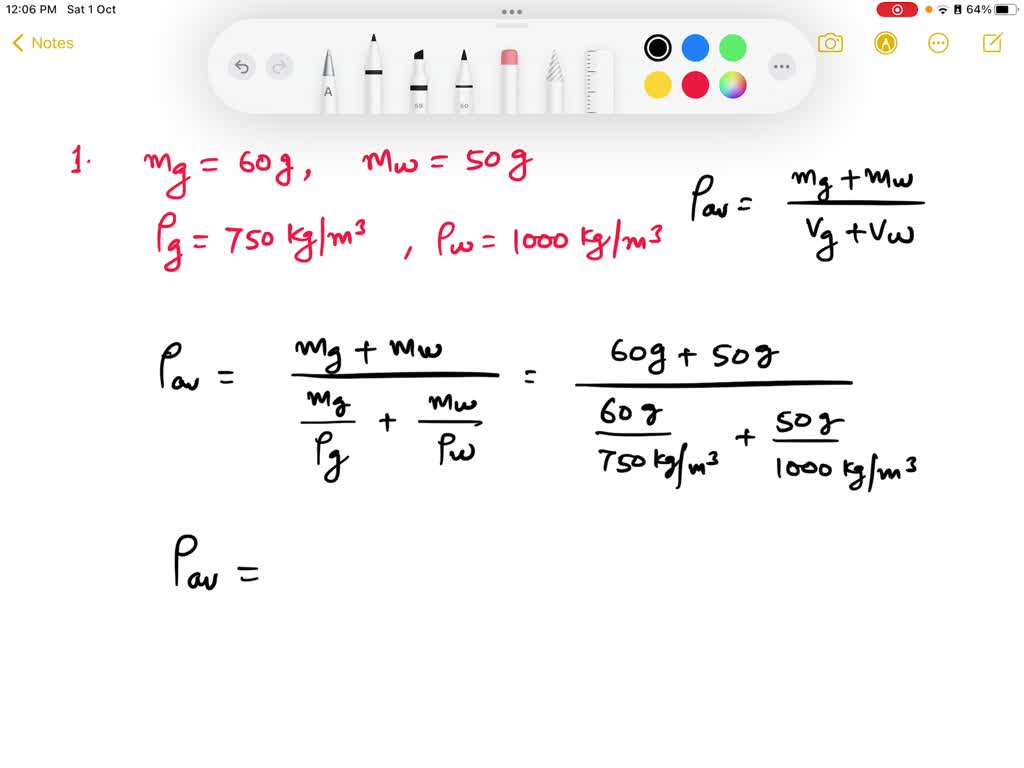 12:06 PM Sat 1 Oct 64%
Notes
A 50 50
1. mg = 60g, mw = 50g
ρg = 750 kg/m³, ρw = 1000 kg/m³
ρav = (mg + mw) / (Vg + Vw)
ρav = (mg + mw) / (mg/ρg + mw/ρw) = (60g + 50g) / (60g/750 kg/m³ + 50g/1000 kg/m³)
ρav =